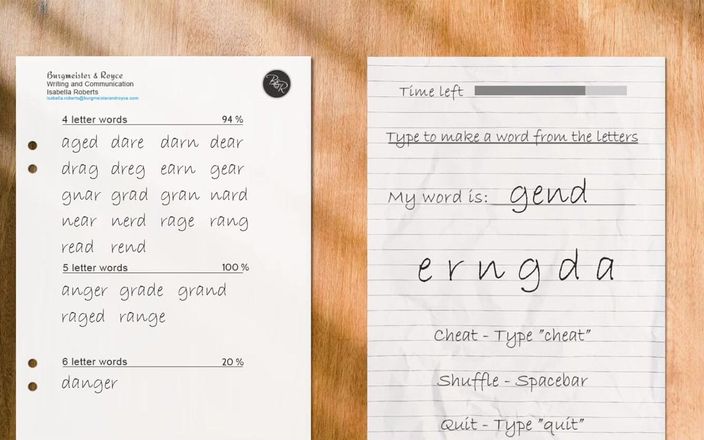 Burgmeister & Royce
Writing and Communication
Isabella Roberts
isabella.roberts@burgmeisterandroyce.com
B&R
4 letter words 94 %
aged dare darn dear
drag dreg earn gear
gnar grad gran nard
near nerd rage rang
read rend
5 letter words 100 %
anger grade grand
raged range
6 letter words 20 %
danger
Time left
Type to make a word from the letters
My word is: gend
e r n g d a
Cheat - Type "cheat"
Shuffle - Spacebar
Quit - Type "quit"